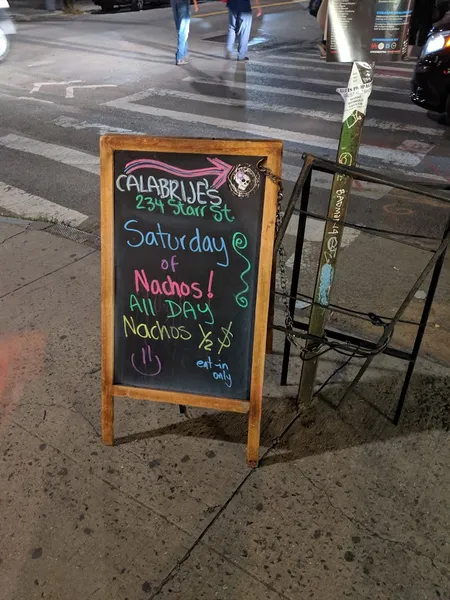 CALABRIJE'S
234 Starr St.
Saturday
of
Nachos!
All DAY
Nachos ½ $
eat-in
only